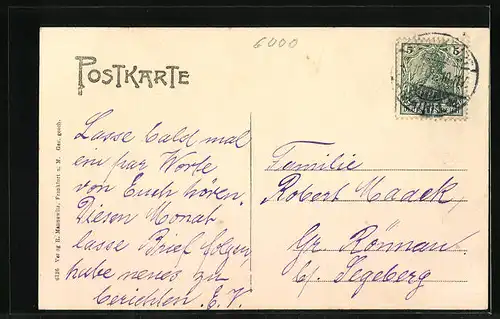 6000
POSTKARTE
5 5
Lasse bald mal
ein par Worte
von Euch hören.
Diesen Monat
lasse Brief folgen,
habe neues zu
berichten. E. V.
Familie
Robert Maack,
Gr. Rönnau
b/ Segeberg
Verlag R. Frankfurt a. M. Ges. gesch.